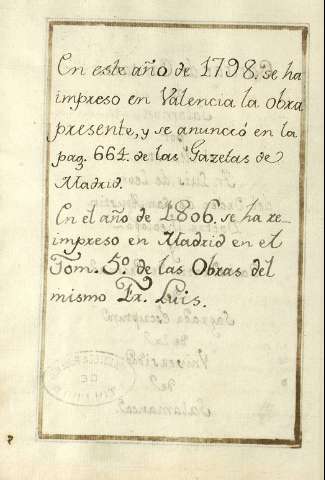 En este año de 1798. se ha
impreso en Valencia la obra
presente, y se anunció en la
pag. 664. de las Gazetas de
Madrid.
En el año de 1806. se ha re-
impreso en Madrid en el
Tom. 5º. de las Obras del
mismo Fr. Luis.